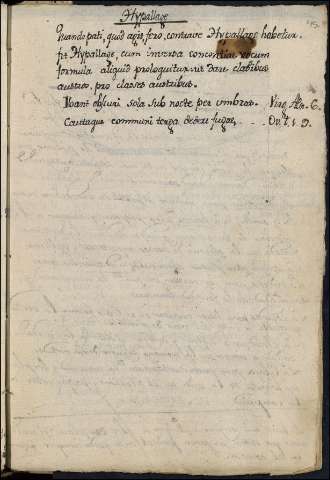 Hypallage
Quando pati, quod agit, fero, contrave Hypallage habetur.
fit Hypallage, cum inversa vocum
formula aliquid proloquitur ut dare classibus
austros, pro classes austribus.
Ibant obscuri sola sub nocte per umbras. Virg. Æn. 6.
communi terga dedere fugæ,